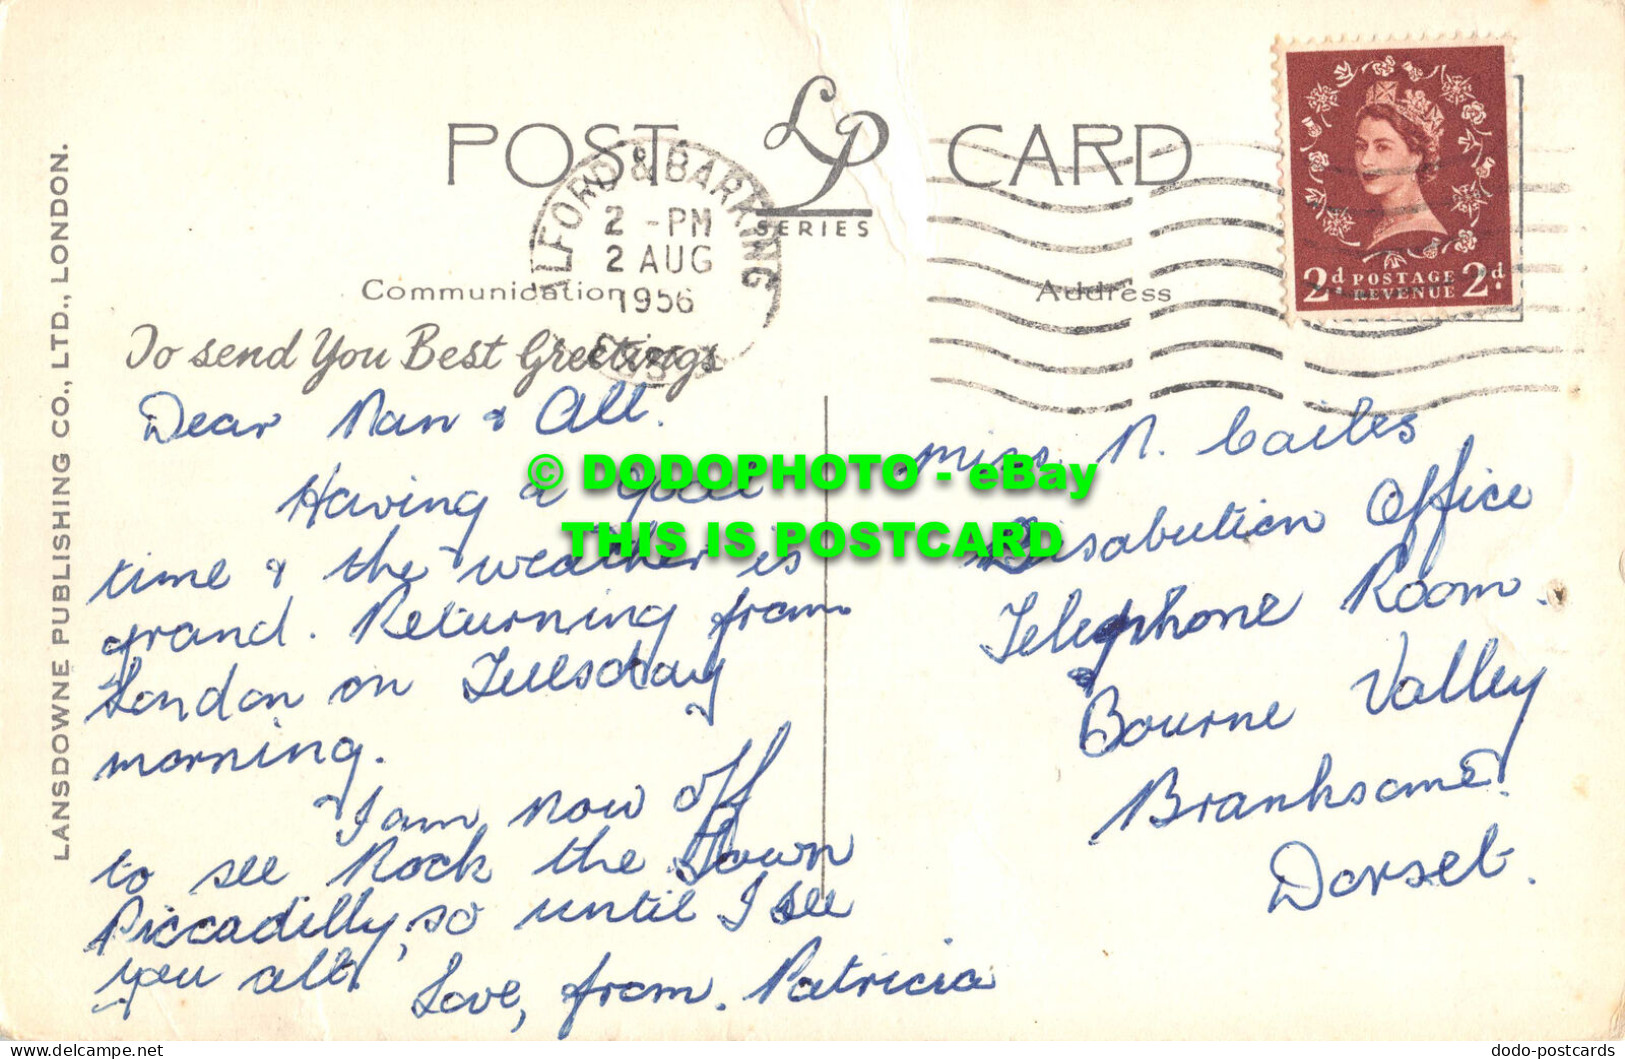 LANSDOWNE PUBLISHING CO., LTD., LONDON.
POST CARD
LP
SERIES
ILFORD & BARKING
2 - PM
2 AUG
1956
ESSEX
Communication
Address
2d POSTAGE 2d
REVENUE
To send You Best Greetings
Dear Nan & All.
Having a good
time & the weather is
grand. Returning from
London on Tuesday
morning.
I am now off
to see Rock the Town
Piccadilly, so until I see
you all,
Love, from. Patricia
Miss N. Cailes
Disabution Office
Telephone Room.
Bourne Valley
Branksome.
Dorset.
© DODOPHOTO - eBay
THIS IS POSTCARD
dodo-postcards
delcampe.net